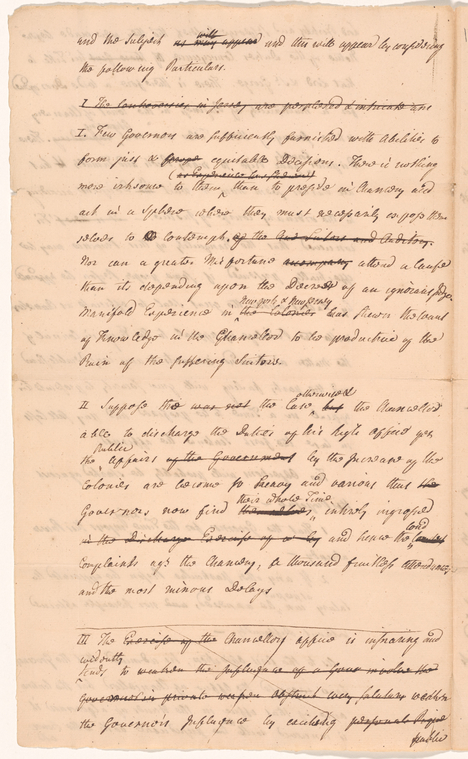 and the Subject as will may appear and this will appear by considering
the following Particulars.
I The Controversies in Jersey are perplexed & intricate and
I. Few Governors are sufficiently furnished with Abilities to
form just & equitable Decisions. There is nothing
(as Experience has shewn it)
more irksome to them than to preside in Chancery and
act in a Sphere where they must necessarily expose them
selves to Contempt, of the and Suitors and Auditory.
Nor can a greater Misfortune accompany attend a Cause
than its depending upon the Decree of an ignorant Judge
New york & New Jersey
Manifold Experience in the Colonies has shewn the want
of Knowledge in the Chancellor to be productive of the
Ruin of the suffering Suitors.
otherwise &
II Suppose the was not the Case but the Chancellor
able to discharge the Duties of his high office yet
Public
the Affairs of the Government by the Increase of the
Colonies are become so heavy and various that the
their whole Time
Governors now find themselves intirely ingrossed
in the Discharge Exercise of and hence the
Complaints agt the Chancery, a thousand fruitless attendances
and the most ruinous Delays
III The Exercise of the Chancellors office is insnaring and
evidently
tends to weaken the Influence of a Govr involve the
Governor in private weaken obstruct very salutary weaken
the Governor's Influence by exciting personal Pique